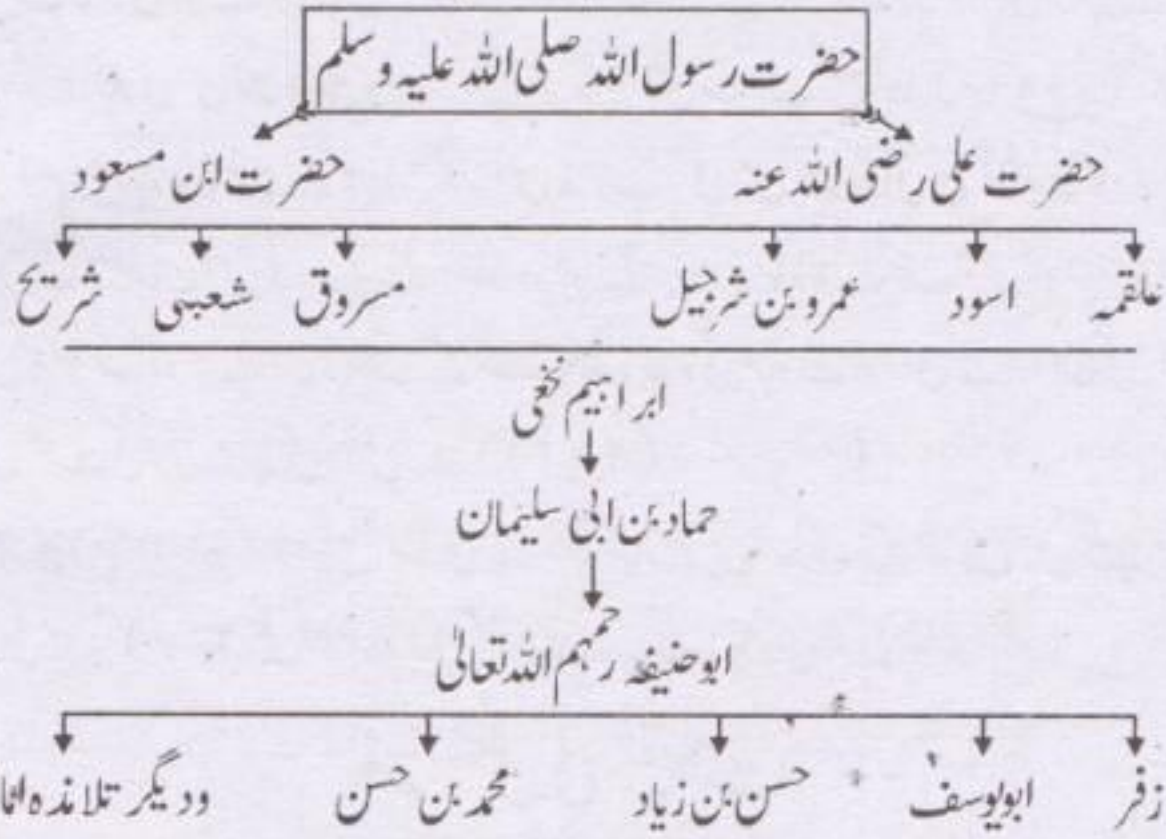 حضرت رسول اللہ صلی اللہ علیہ وسلم
حضرت علی رضی اللہ عنہ حضرت ابن مسعود
علقمہ اسود عمرو بن شرجیل مسروق شعبی شریح
ابراہیم نخعی
حماد بن ابی سلیمان
ابو حنیفہ رحمہم اللہ تعالیٰ
زفر ابو یوسف حسن بن زیاد محمد بن حسن ودیگر تلامذہ